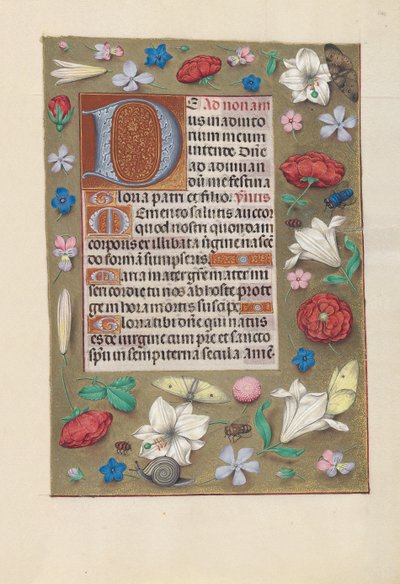 DE Ad nonam
us in adiuto
rium meum
intende Dñe
ad adiuuan
dū me festina
Gloria patri et filio. Ymnus
Memento salutis auctor
quod nostri quondam
corporis et illibata v̄gine nascē
do formā sumpseris
Maria mater gr̄e mater mi
sericordie tu nos ab hoste prote
ge in hora mortis suscipe
Gloria tibi dñe qui natus
es de uirgine cum p̄re et sancto
sp̄u in sempiterna secula Amē